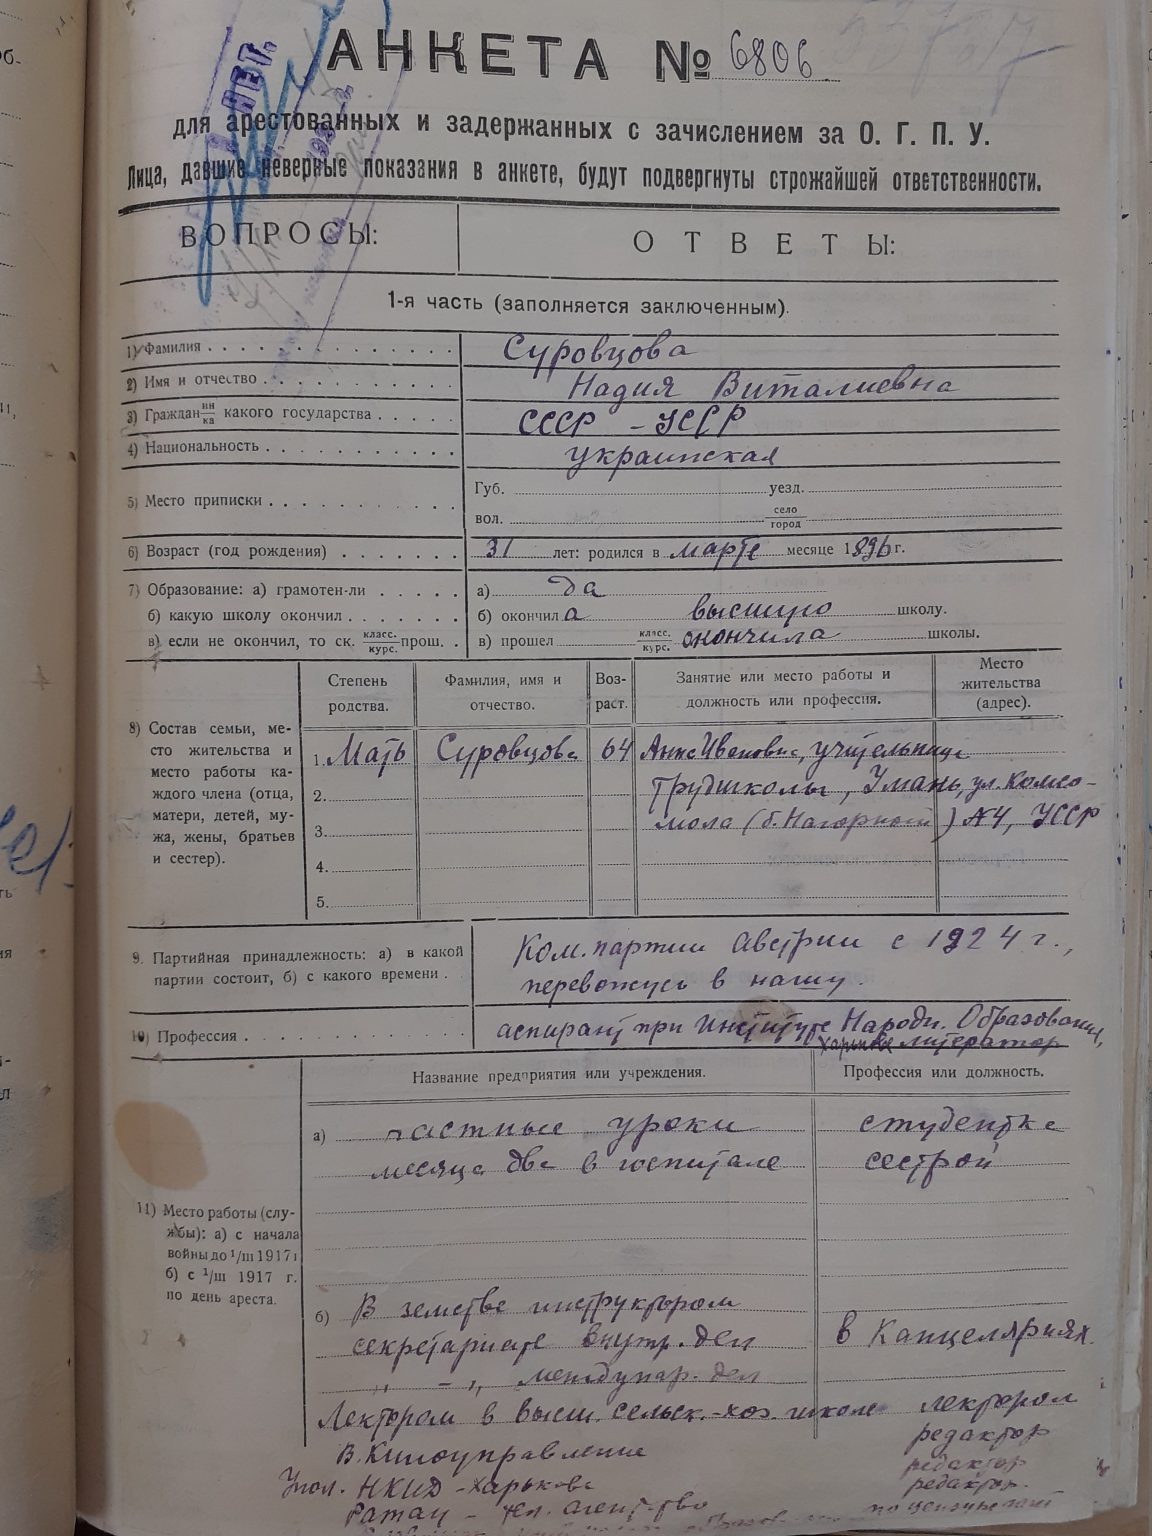 АНКЕТА № 6806
для арестованных и задержанных с зачислением за О. Г. П. У.
Лица, давшие неверные показания в анкете, будут подвергнуты строжайшей ответственности.
ВОПРОСЫ:
ОТВЕТЫ:
1-я часть (заполняется заключенным).
1) Фамилия
Суровцова
2) Имя и отчество
Надия Виталиевна
3) Граждан нн/ка какого государства
СССР – УССР
4) Национальность
украинская
5) Место приписки
Губ. уезд.
вол. село/город
6) Возраст (год рождения)
31 лет: родился в марте месяце 1896 г.
7) Образование: а) грамотен-ли
а) да
б) какую школу окончил
б) окончил а высшую школу.
в) если не окончил, то ск. класс./курс. прош.
в) прошел класс./курс. окончила школы.
8) Состав семьи, ме-
сто жительства и
место работы ка-
ждого члена (отца,
матери, детей, му-
жа, жены, братьев
и сестер).
Степень
родства.
Фамилия, имя и
отчество.
Воз-
раст.
Занятие или место работы и
должность или профессия.
Место
жительства
(адрес).
1. Мать Суровцова 64 Анна Ивановна, учительница
2. Трудшколы, Умань, ул. Комсо-
3. мола (б. Нагорной) №4, УССР
4.
5.
9. Партийная принадлежность: а) в какой
партии состоит, б) с какого времени.
Ком. партии Австрии с 1924 г.,
перевожусь в нашу.
10) Профессия
аспирант при Институте Народн. Образования,
Харькове литератор
11) Место работы (слу-
жбы): а) с начала
войны до 1/III 1917 г
б) с 1/III 1917 г.
по день ареста.
Название предприятия или учреждения.
Профессия или должность.
а) частные уроки студентка
месяца два в госпитале сестрой
б) В земстве инструктором
секретариате внутр. дел в Канцеляриях.
„ – „ междунар. дел
Лектором в высш. сельск.-хоз. школе лектором
В. Киноуправление редактор
Упол. НКИД – Харькове редактор
Ратау – агентство редактор.